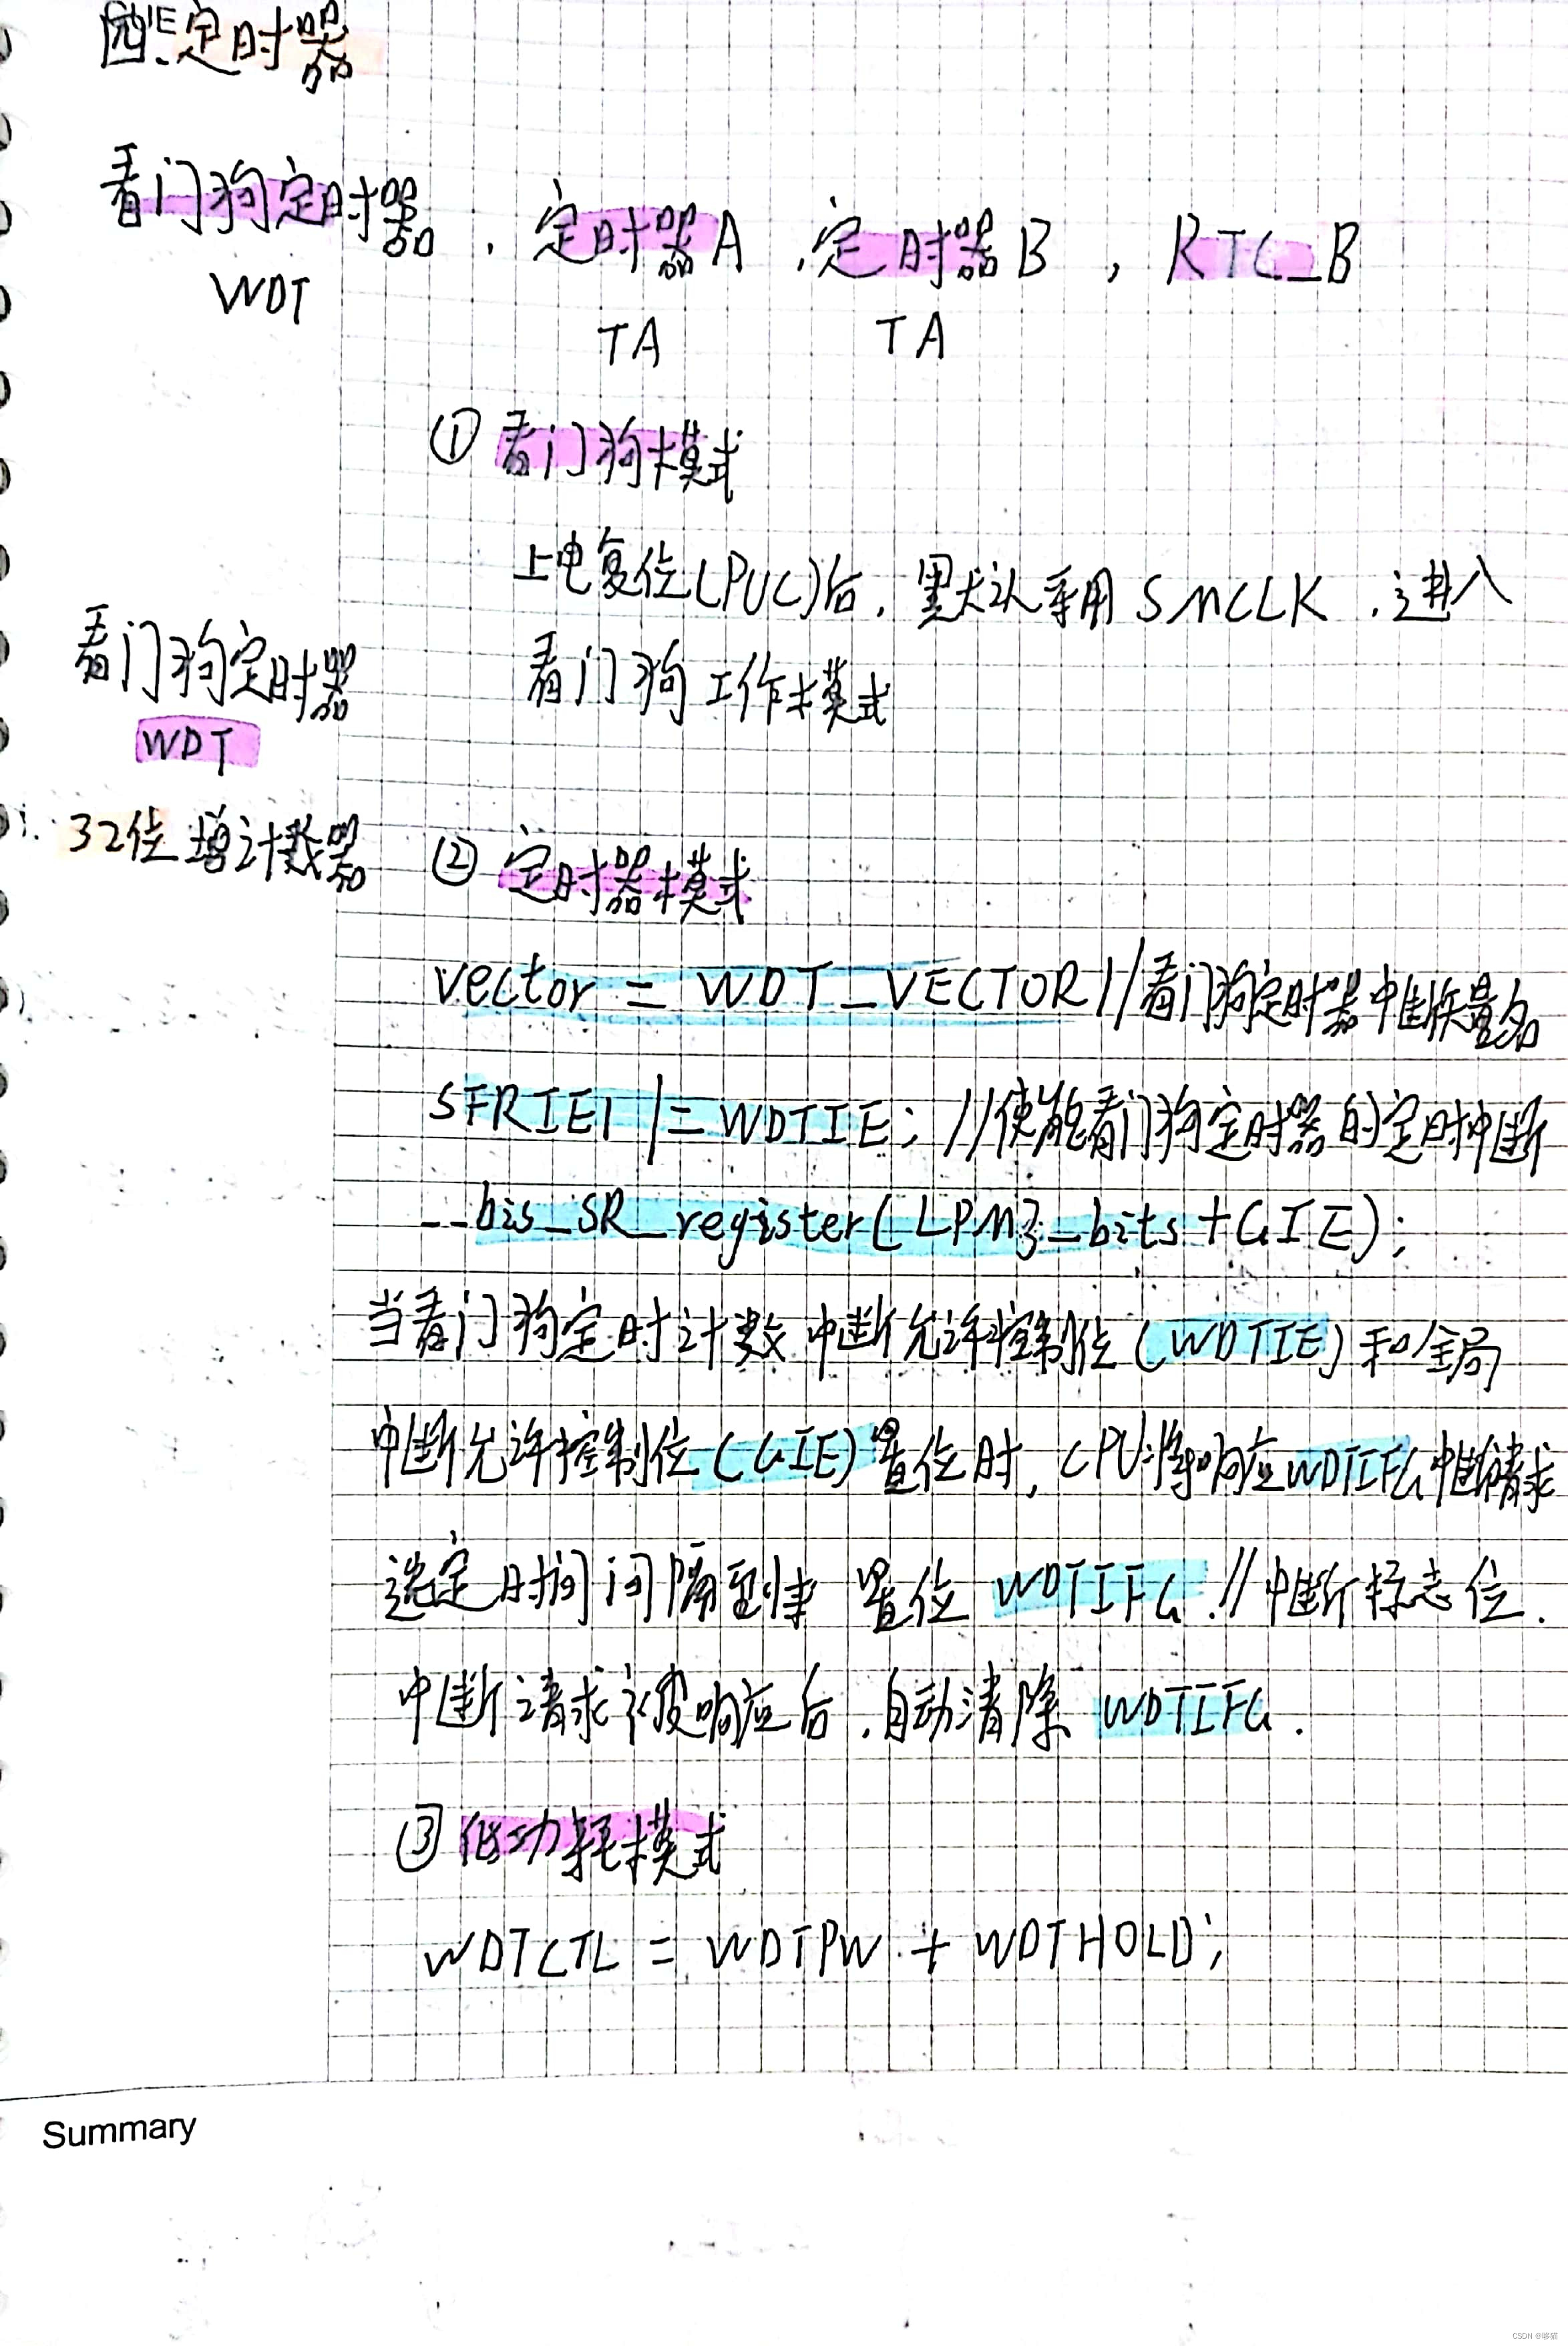 定时器
看门狗定时器、定时器A、定时器B，RTC_B
WDT TA TA
① 看门狗模式
上电复位(PUC)后，默认采用SMCLK，进入
看门狗工作模式
看门狗定时器
WDT
32位增计数器
② 定时器模式
vector = WDT_VECTOR //看门狗定时器中断向量名
SFRIE1 |= WDTIE; //使能看门狗定时器的定时中断
__bis_SR_register(LPM3_bits+GIE);
当看门狗定时计数中断允许控制位(WDTIE)和全局
中断允许控制位(GIE)置位时，CPU将响应WDTIFG中断请求
选定时间间隔到来 置位 WDTIFG.//中断标志位.
中断请求被响应后，自动清除 WDTIFG.
③ 低功耗模式
WDTCTL = WDTPW + WDTHOLD;
Summary
CSDN @哆猫